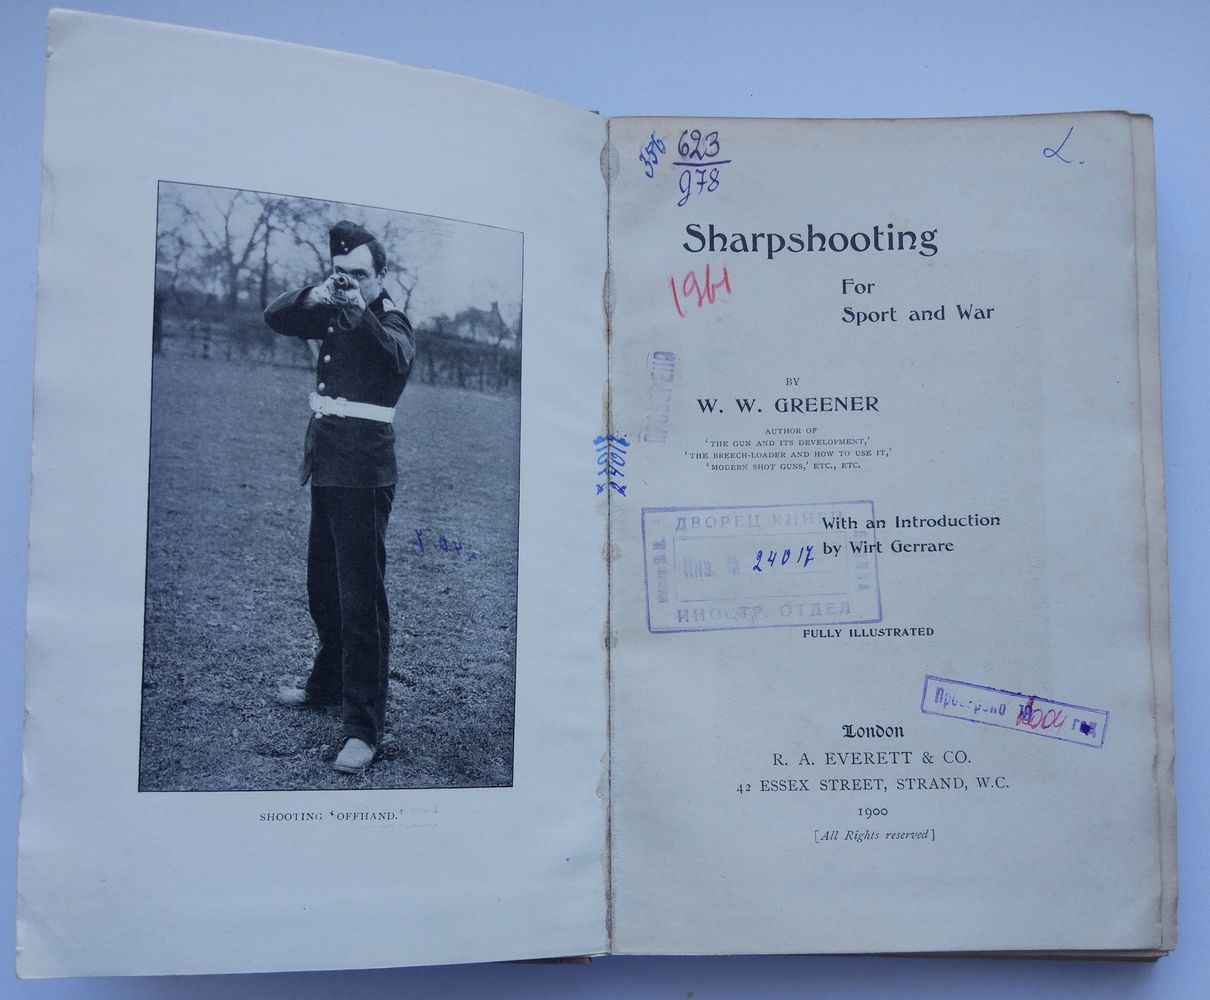 SHOOTING 'OFFHAND.'
356
623
978
L.
Sharpshooting
1961
For
Sport and War
ПРОВЕРЕНО
BY
W. W. GREENER
AUTHOR OF
'THE GUN AND ITS DEVELOPMENT,'
'THE BREECH-LOADER AND HOW TO USE IT,'
'MODERN SHOT GUNS,' ETC., ETC.
24017
ДВОРЕЦ КНИГИ
With an Introduction
Инв. №
24017
by Wirt Gerrare
ИНОСТР. ОТДЕЛ
FULLY ILLUSTRATED
Проверено
год
London
R. A. EVERETT & CO.
42 ESSEX STREET, STRAND, W.C.
1900
[All Rights reserved]